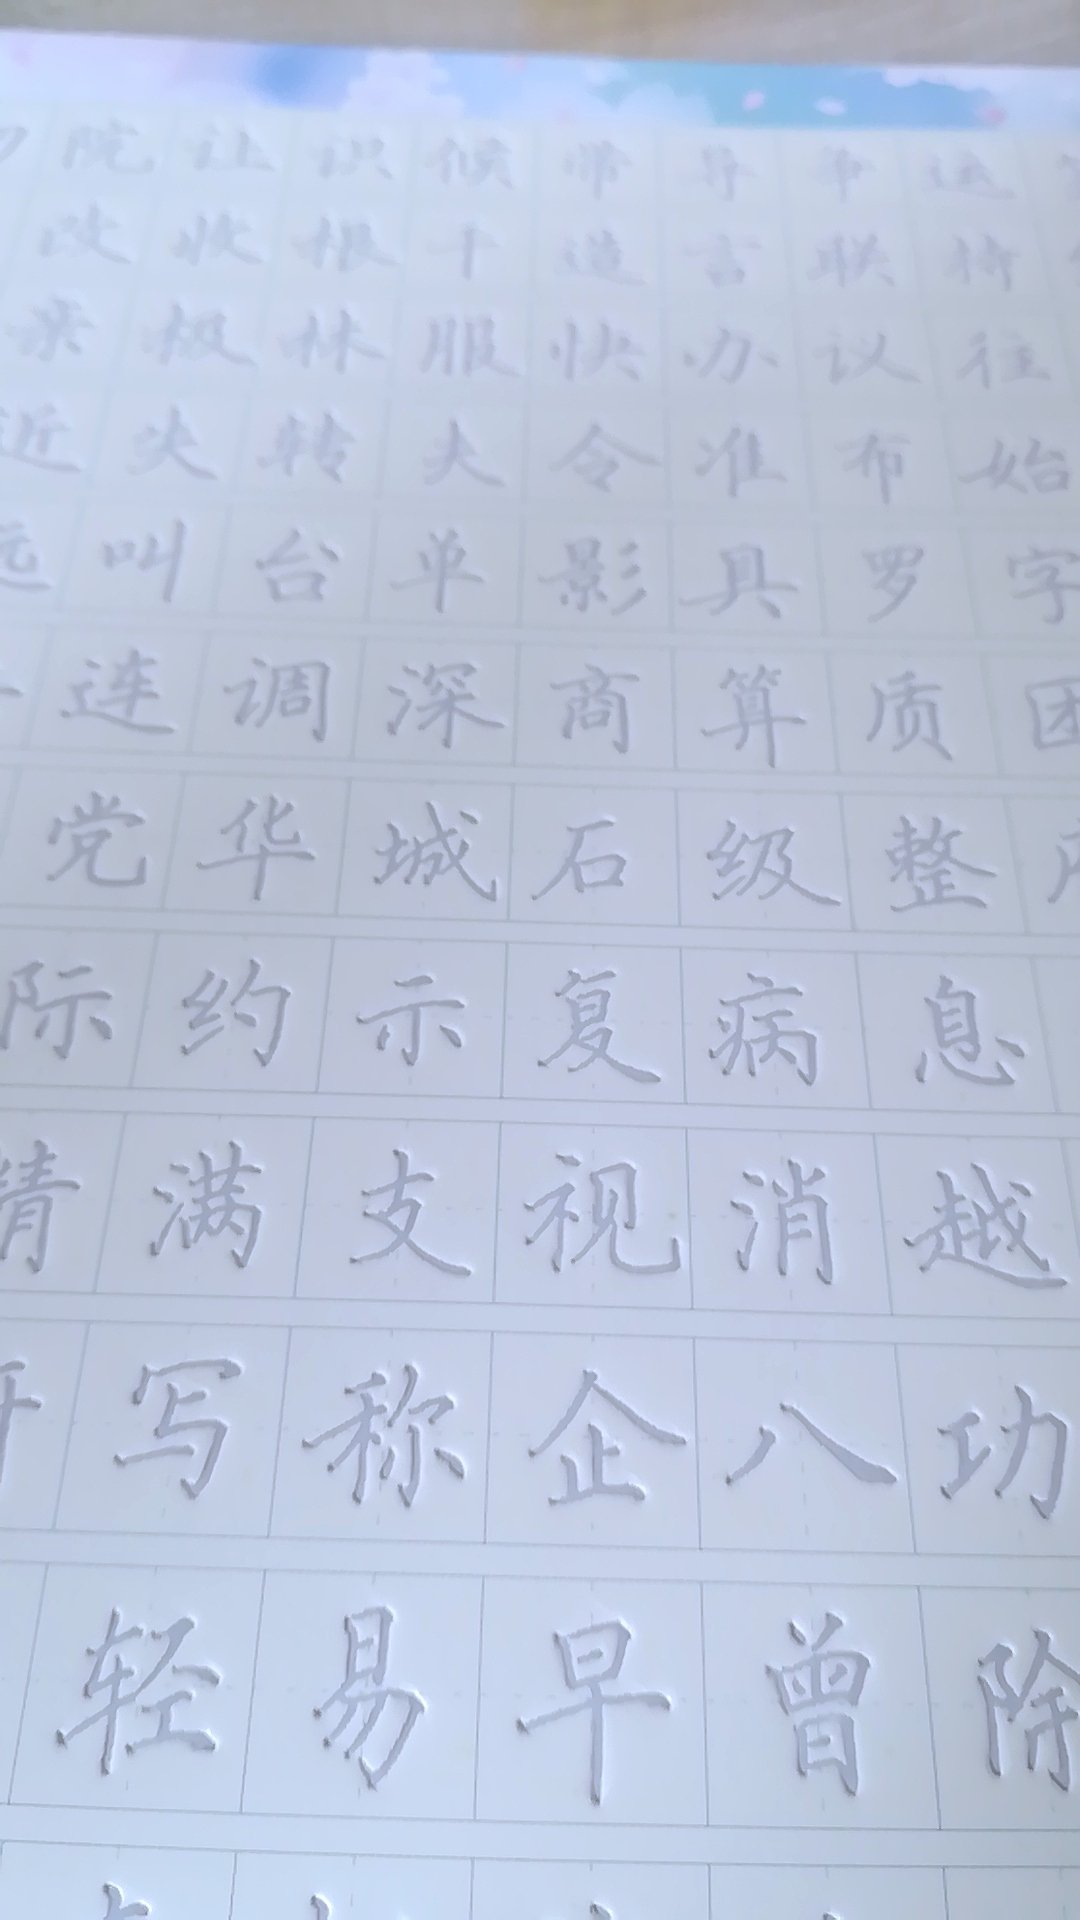 院 让 识 候 带 导 争 运
改 收 根 干 造 言 联 持
亲 极 林 服 快 办 议 往
近 失 转 夫 令 准 布 始
远 叫 台 单 影 具 罗 字
连 调 深 商 算 质 团
党 华 城 石 级 整
际 约 示 复 病 息
精 满 支 视 消 越
写 称 企 八 功
轻 易 早 曾 除